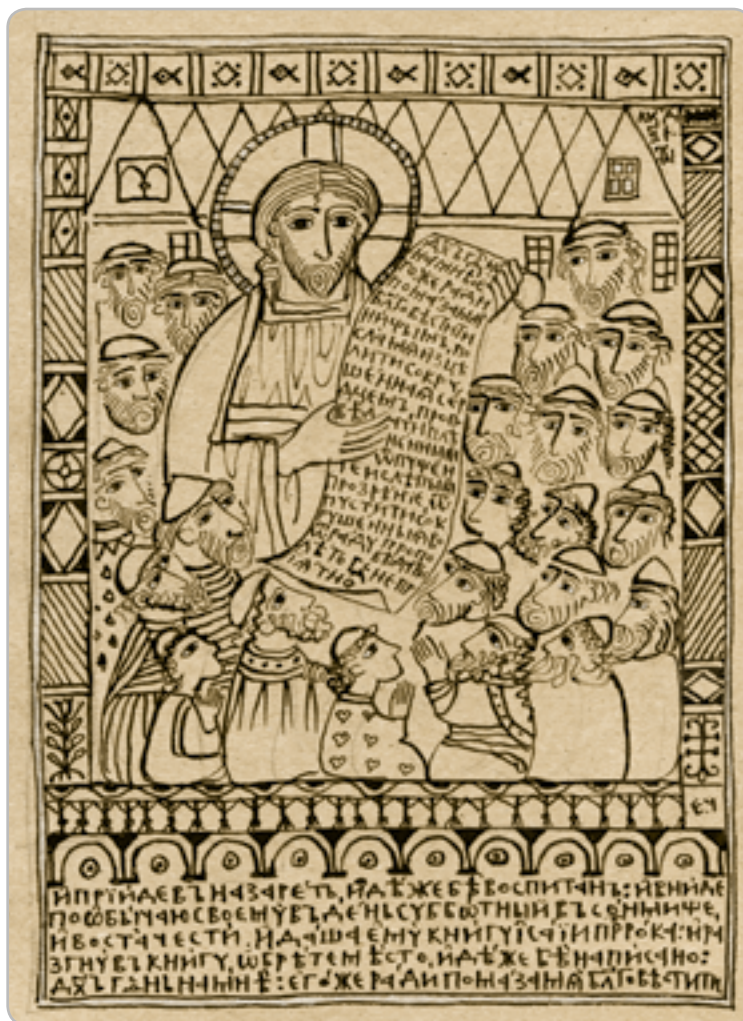 ДХЪ ГДНЬ
НАМНѢ: Е
ГОЖЕ РАДИ
ПОМАЗАМѦ
БЛГОВѢСТИТИ
НИЩЫМЪ, ПО
СЛА МѦ ИЗЦѢ
ЛИТИ СОКРУ
ШЕННЫѦ СЕР
ДЦЕМЪ, ПРОП
ПЛѢ
ННЫМЪ
ѾПУЩЕН
ІЕ И СЛѢПЫМЪ
ПРОЗРѢНІЕ, Ѿ
ПУСТИТИ СОК
РУШЕННЫѦ ВО
ѾРАДУ, ПРОПО
ВѢДАТИ
ЛѢТО ГДНЕ ПРІ
ЯТНО
ИПРІЙДЕ ВЪ НАЗАРЕТЪ, ИДѢЖЕ БѢ ВОСПИТАНЪ: И ВНИДЕ
ПО ѠБЫЧАЮ СВОЕМУ ВЪ ДЕНЬ СУББѠТНЫЙ ВЪ СОНМИЩЕ,
И ВОСТА ЧЕСТИ. И ДАША ЕМУ КНИГУ ІСАІИ ПРРОКА: И РА
ЗГНУВЪ КНИГУ, ѠБРѢТЕ МѢСТО, ИДѢЖЕ БѢ НАПИСАНО:
ДХЪ ГДНЬ НА МНѢ: ЕГОЖЕ РАДИ ПОМАЗА МѦ БЛГОВѢСТИТИ